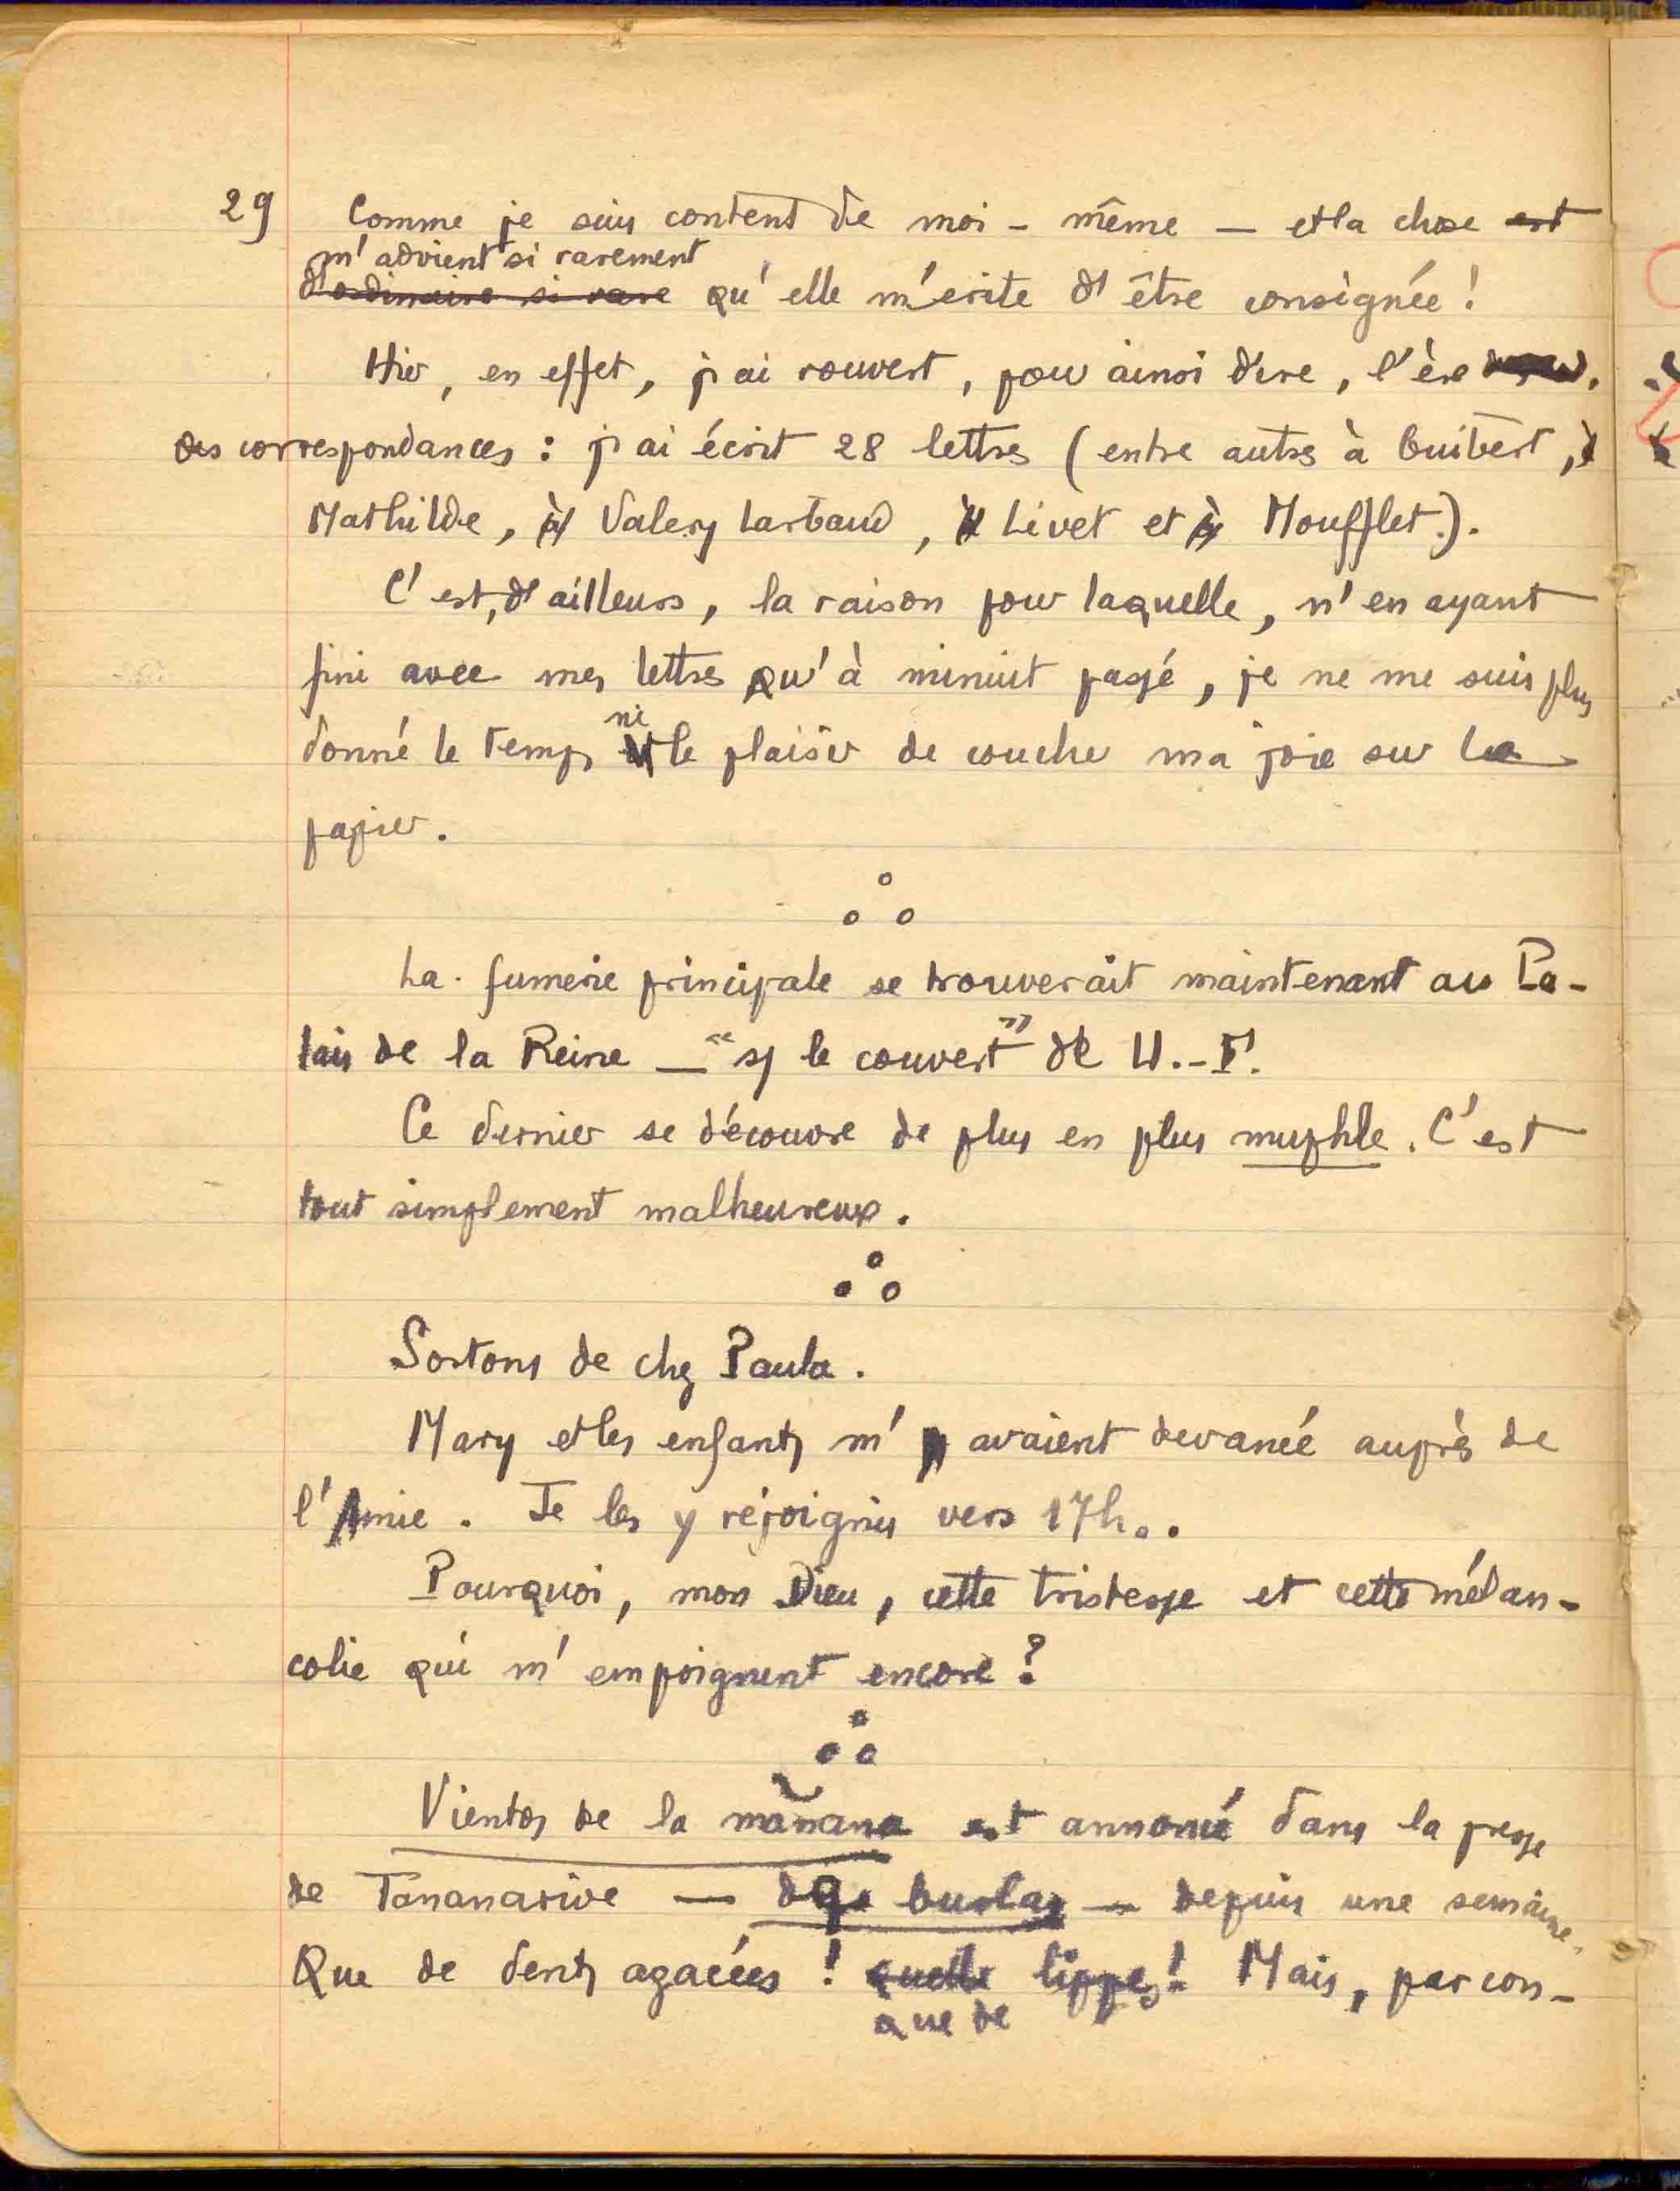 29 Comme je suis content de moi-même — et la chose est
m'advient si rarement
d'ordinaire si rare qu'elle mérite d'être consignée !
Hier, en effet, j'ai rouvert, pour ainsi dire, l'ère
des correspondances : j'ai écrit 28 lettres (entre autres à Guibert, à
Mathilde, à Valery Larbaud, à Livet et à Moufflet).
C'est, d'ailleurs, la raison pour laquelle, n'en ayant
fini avec mes lettres qu'à minuit passé, je ne me suis plus
ni
donné le temps le plaisir de coucher ma joie sur le
papier.
La fumerie principale se trouverait maintenant au Pa-
lais de la Reine — " s/ le couvert " de U.-F.
Ce dernier se découvre de plus en plus muphle. C'est
tout simplement malheureux.
Sortons de chez Paula.
Mary et les enfants m'avaient devancé auprès de
l'Amie. Je les y rejoignis vers 17h..
Pourquoi, mon Dieu, cette tristesse et cette mélan-
colie qui m'empoignent encore ?
Vientos de la mañana est annoncé dans la presse
de Tananarive — — depuis une semaine.
Que de dents agacées ! quelle lippes ! Mais, par con-
que de